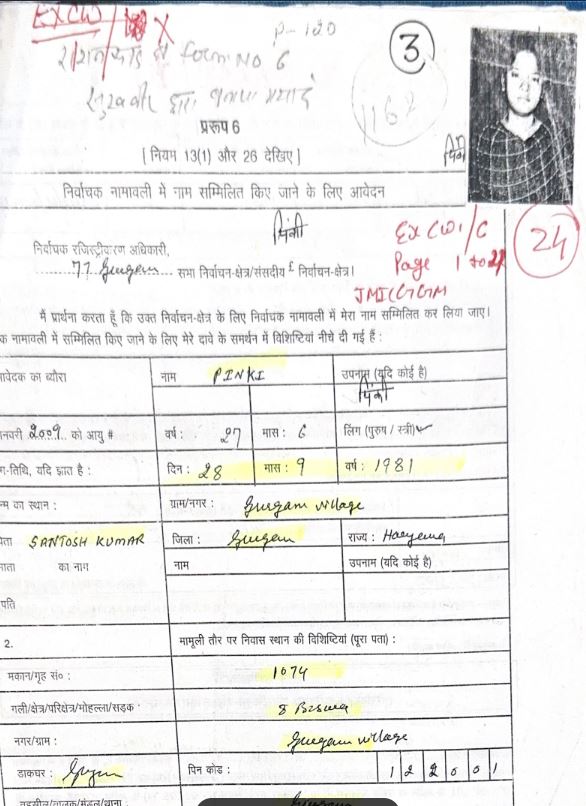 EXCW/
P-120
राशनकार्ड व form No 6
सुखवीर द्वारा बनाया गया है
3
1162
प्ररूप 6
[ नियम 13(1) और 26 देखिए ]
पिंकी
निर्वाचक नामावली में नाम सम्मिलित किए जाने के लिए आवेदन
पिंकी
Ex CW1/C
Page 1 to 24
JMIC GGM
24
निर्वाचक रजिस्ट्रीकरण अधिकारी,
77 Gurgaon सभा निर्वाचन-क्षेत्र/संसदीय £ निर्वाचन-क्षेत्र।
में प्रार्थना करता हूँ कि उक्त निर्वाचन-क्षेत्र के लिए निर्वाचक नामावली में मेरा नाम सम्मिलित कर लिया जाए।
क नामावली में सम्मिलित किए जाने के लिए मेरे दावे के समर्थन में विशिष्टियां नीचे दी गई हैं :
वेदक का ब्यौरा नाम PINKI उपनाम (यदि कोई है)
पिंकी
नवरी 2009 को आयु # वर्ष : 27 मास : 6 लिंग (पुरुष / स्त्री)
-तिथि, यदि ज्ञात है : दिन : 28 मास : 9 वर्ष : 1981
म का स्थान : ग्राम/नगर : Gurgaon village
ता SANTOSH KUMAR जिला : Gurgaon राज्य : Haryana
माता का नाम नाम उपनाम (यदि कोई है)
पति
2. मामूली तौर पर निवास स्थान की विशिष्टियां (पूरा पता) :
मकान/गृह सं० : 1074
गली/क्षेत्र/परिक्षेत्र/मोहल्ला/सड़क : 8 Biswa
नगर/ग्राम : Gurgaon village
डाकघर : Gurgaon पिन कोड : 122001